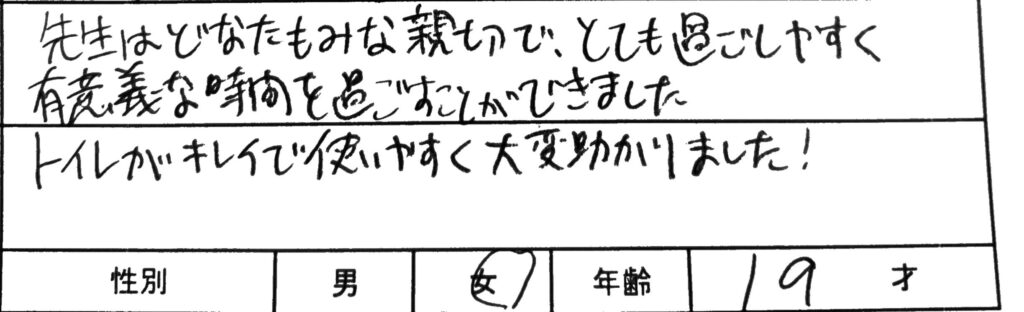 先生はどなたもみな親切で、とても過ごしやすく
有意義な時間を過ごすことができました
トイレがキレイで使いやすく大変助かりました！
性別 男 女 年齢 19 才